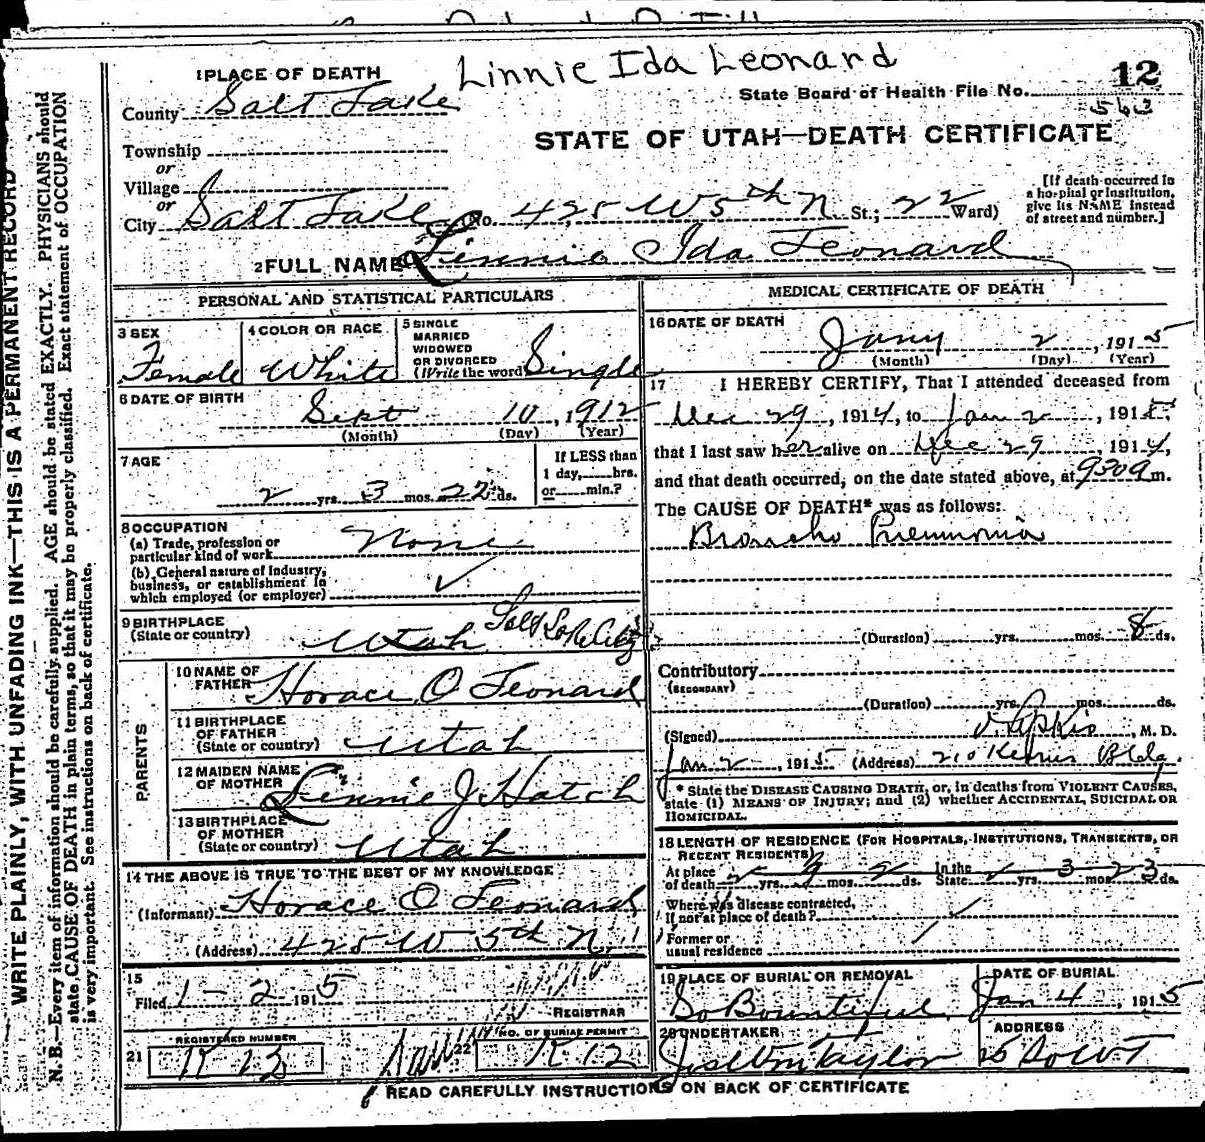 Linnie Ida Leonard
12
1 PLACE OF DEATH
County Salt Lake
State Board of Health File No.
563
STATE OF UTAH—DEATH CERTIFICATE
Township
or
Village
or
City Salt Lake No. 425 W 5th N St.; 22 Ward)
[If death occurred in a hospital or institution, give its NAME instead of street and number.]
2 FULL NAME Linnie Ida Leonard
PERSONAL AND STATISTICAL PARTICULARS
3 SEX
Female
4 COLOR OR RACE
White
5 SINGLE
MARRIED
WIDOWED
OR DIVORCED
(Write the word)
Single
6 DATE OF BIRTH
Sept 10, 1912
(Month) (Day) (Year)
7 AGE
2 yrs. 3 mos. 22 ds.
If LESS than
1 day, hrs.
or min.?
8 OCCUPATION
(a) Trade, profession or
particular kind of work None
(b) General nature of industry,
business, or establishment in
which employed (or employer)
9 BIRTHPLACE
(State or country) Utah Salt Lake City
PARENTS
10 NAME OF
FATHER Horace O Leonard
11 BIRTHPLACE
OF FATHER
(State or country) Utah
12 MAIDEN NAME
OF MOTHER Linnie J. Hatch
13 BIRTHPLACE
OF MOTHER
(State or country) Utah
14 THE ABOVE IS TRUE TO THE BEST OF MY KNOWLEDGE
(Informant) Horace O Leonard
(Address) 425 W 5th N.
15
Filed 1-2 1915
REGISTRAR
21 REGISTERED NUMBER
K 12
22 NO. OF BURIAL PERMIT
K 12
MEDICAL CERTIFICATE OF DEATH
16 DATE OF DEATH
Jany 2, 1915
(Month) (Day) (Year)
17 I HEREBY CERTIFY, That I attended deceased from
Dec 29, 1914, to Jan 2, 1915
that I last saw her alive on Dec 29, 1914,
and that death occurred, on the date stated above, at 930a m.
The CAUSE OF DEATH* was as follows:
Broncho Pneumonia
(Duration) yrs. mos. 8 ds.
Contributory
(SECONDARY)
(Duration) yrs. mos. ds.
(Signed) M. D.
Jan 2, 1915 (Address) 210 Kearns Bldg.
* State the DISEASE CAUSING DEATH, or, in deaths from VIOLENT CAUSES,
state (1) MEANS OF INJURY; and (2) whether ACCIDENTAL, SUICIDAL OR
HOMICIDAL.
18 LENGTH OF RESIDENCE (FOR HOSPITALS, INSTITUTIONS, TRANSIENTS, OR
RECENT RESIDENTS)
At place In the
of death 2 yrs. 9 mos. 2 ds. State 2 yrs. 3 mos. 23 ds.
Where was disease contracted,
If not at place of death?
Former or
usual residence
19 PLACE OF BURIAL OR REMOVAL
So Bountiful
DATE OF BURIAL
Jan 4, 1915
20 UNDERTAKER
Jos Wm Taylor
ADDRESS
25 So W T
READ CAREFULLY INSTRUCTIONS ON BACK OF CERTIFICATE
WRITE PLAINLY, WITH UNFADING INK—THIS IS A PERMANENT RECORD
N. B.—Every item of information should be carefully supplied. AGE should be stated EXACTLY. PHYSICIANS should
state CAUSE OF DEATH in plain terms, so that it may be properly classified. Exact statement of OCCUPATION
is very important. See instructions on back of certificate.